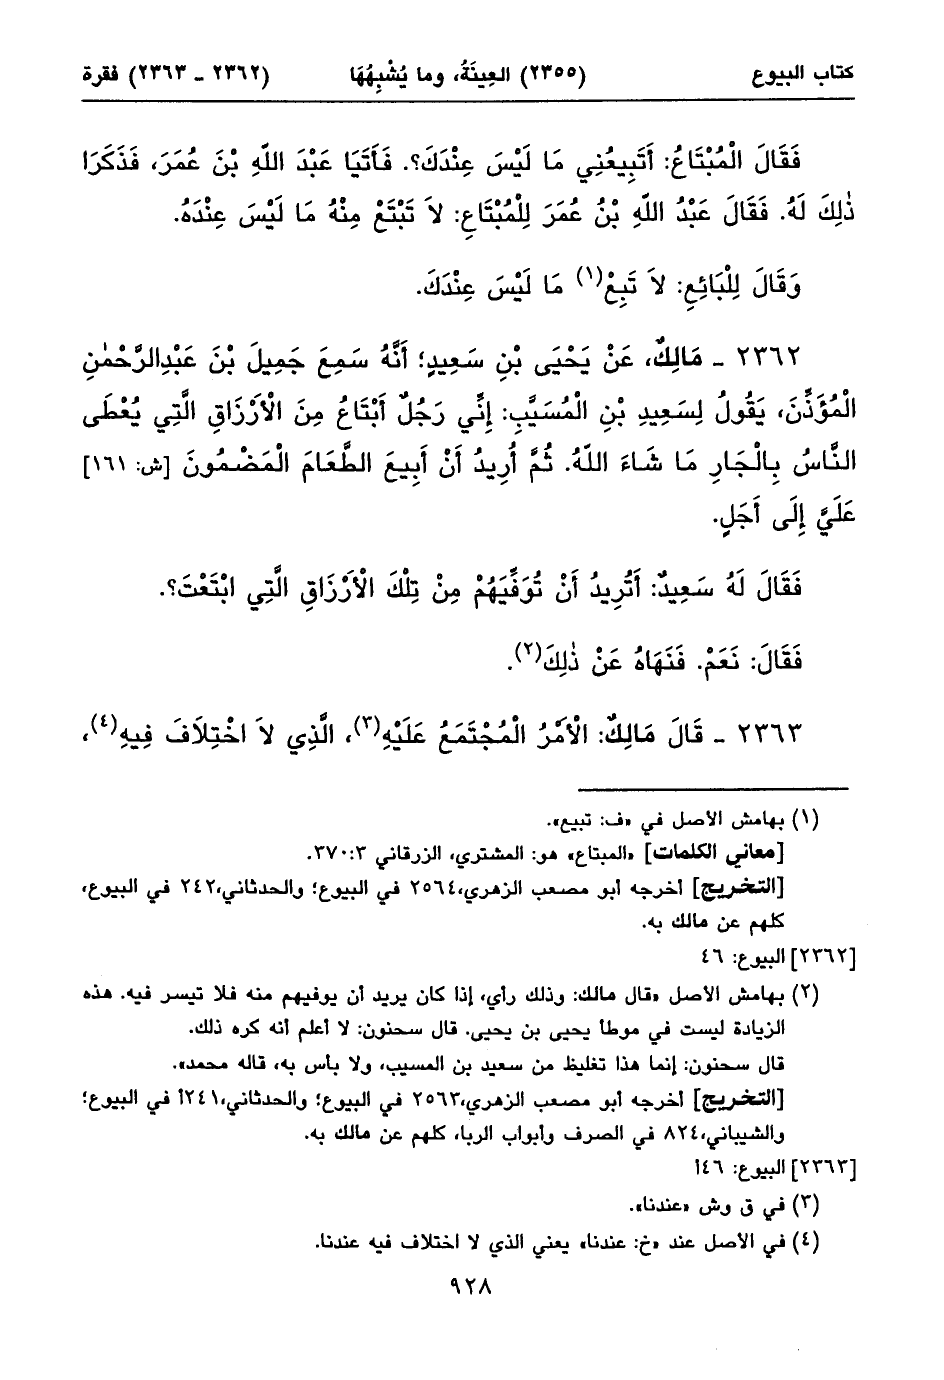 كتاب البيوع (٢٣٥٥) العِينَةُ، وما يُشْبِهُهَا (٢٣٦٢ - ٢٣٦٣) فقرة
فَقَالَ الْمُبْتَاعُ: أَتَبِيعُنِي مَا لَيْسَ عِنْدَكَ؟. فَأَتَيَا عَبْدَ اللهِ بْنَ عُمَرَ، فَذَكَرَا
ذٰلِكَ لَهُ. فَقَالَ عَبْدُ اللهِ بْنُ عُمَرَ لِلْمُبْتَاعِ: لاَ تَبْتَعْ مِنْهُ مَا لَيْسَ عِنْدَهُ.
وَقَالَ لِلْبَائِعِ: لاَ تَبِعْ(١) مَا لَيْسَ عِنْدَكَ.
٢٣٦٢ - مَالِكٌ، عَنْ يَحْيَى بْنِ سَعِيدٍ؛ أَنَّهُ سَمِعَ جَمِيلَ بْنَ عَبْدِالرَّحْمٰنِ
الْمُؤَذِّنَ، يَقُولُ لِسَعِيدِ بْنِ الْمُسَيَّبِ: إِنِّي رَجُلٌ أَبْتَاعُ مِنَ الْأَرْزَاقِ الَّتِي يُعْطَى
النَّاسُ بِالْجَارِ مَا شَاءَ اللهُ. ثُمَّ أُرِيدُ أَنْ أَبِيعَ الطَّعَامَ الْمَضْمُونَ [ش: ١٦١]
عَلَيَّ إِلَى أَجَلٍ.
فَقَالَ لَهُ سَعِيدٌ: أَتُرِيدُ أَنْ تُوَفِّيَهُمْ مِنْ تِلْكَ الْأَرْزَاقِ الَّتِي ابْتَعْتَ؟.
فَقَالَ: نَعَمْ. فَنَهَاهُ عَنْ ذٰلِكَ(٢).
٢٣٦٣ - قَالَ مَالِكٌ: الْأَمْرُ الْمُجْتَمَعُ عَلَيْهِ(٣)، الَّذِي لاَ اخْتِلَافَ فِيهِ(٤)،
(١) بهامش الأصل في «ف: تبيع».
[معاني الكلمات] «المبتاع» هو: المشتري، الزرقاني ٣٧٠:٣.
[التخريج] أخرجه أبو مصعب الزهري،٢٥٦٤ في البيوع؛ والحدثاني،٢٤٢ في البيوع،
كلهم عن مالك به.
[٢٣٦٢] البيوع: ٤٦
(٢) بهامش الأصل «قال مالك: وذلك رأي، إذا كان يريد أن يوفيهم منه فلا تيسر فيه. هذه
الزيادة ليست في موطأ يحيى بن يحيى. قال سحنون: لا أعلم أنه كره ذلك.
قال سحنون: إنما هذا تغليظ من سعيد بن المسيب، ولا بأس به، قاله محمد».
[التخريج] أخرجه أبو مصعب الزهري،٢٥٦٣ في البيوع؛ والحدثاني،٢٤١أ في البيوع؛
والشيباني،٨٢٤ في الصرف وأبواب الربا، كلهم عن مالك به.
[٢٣٦٣] البيوع: ٤٦أ
(٣) في ق وش «عندنا».
(٤) في الأصل عند «خ: عندنا» يعني الذي لا اختلاف فيه عندنا.
٩٢٨